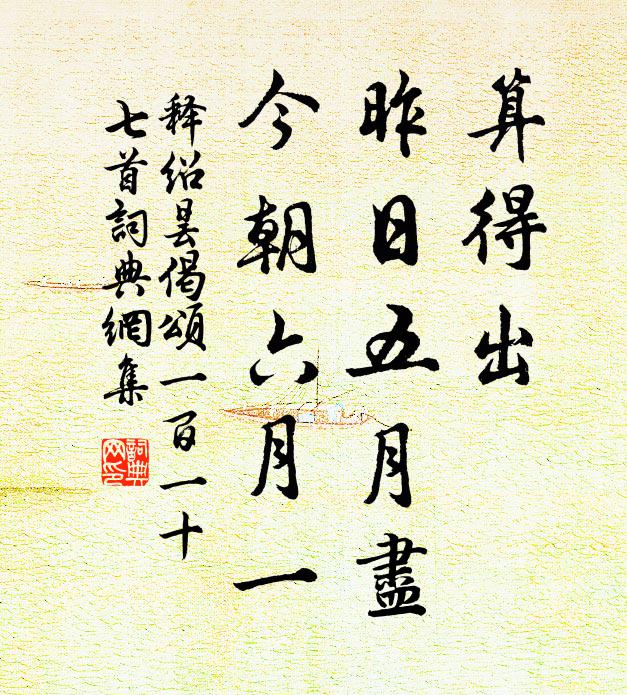 算得出
昨日五月盡
今朝六月一
释绍昙偈頌一百一十
七首詞典網集
詞典网印